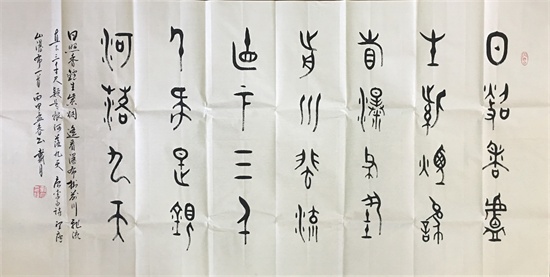 日照香爐
生紫煙遙
看瀑布掛
前川飛流
直下三千
尺疑是銀
河落九天
日照香爐生紫烟遥看瀑布掛前川飛流
直下三千尺疑是銀河落九天唐李白詩望廬
山瀑布一首丙申春